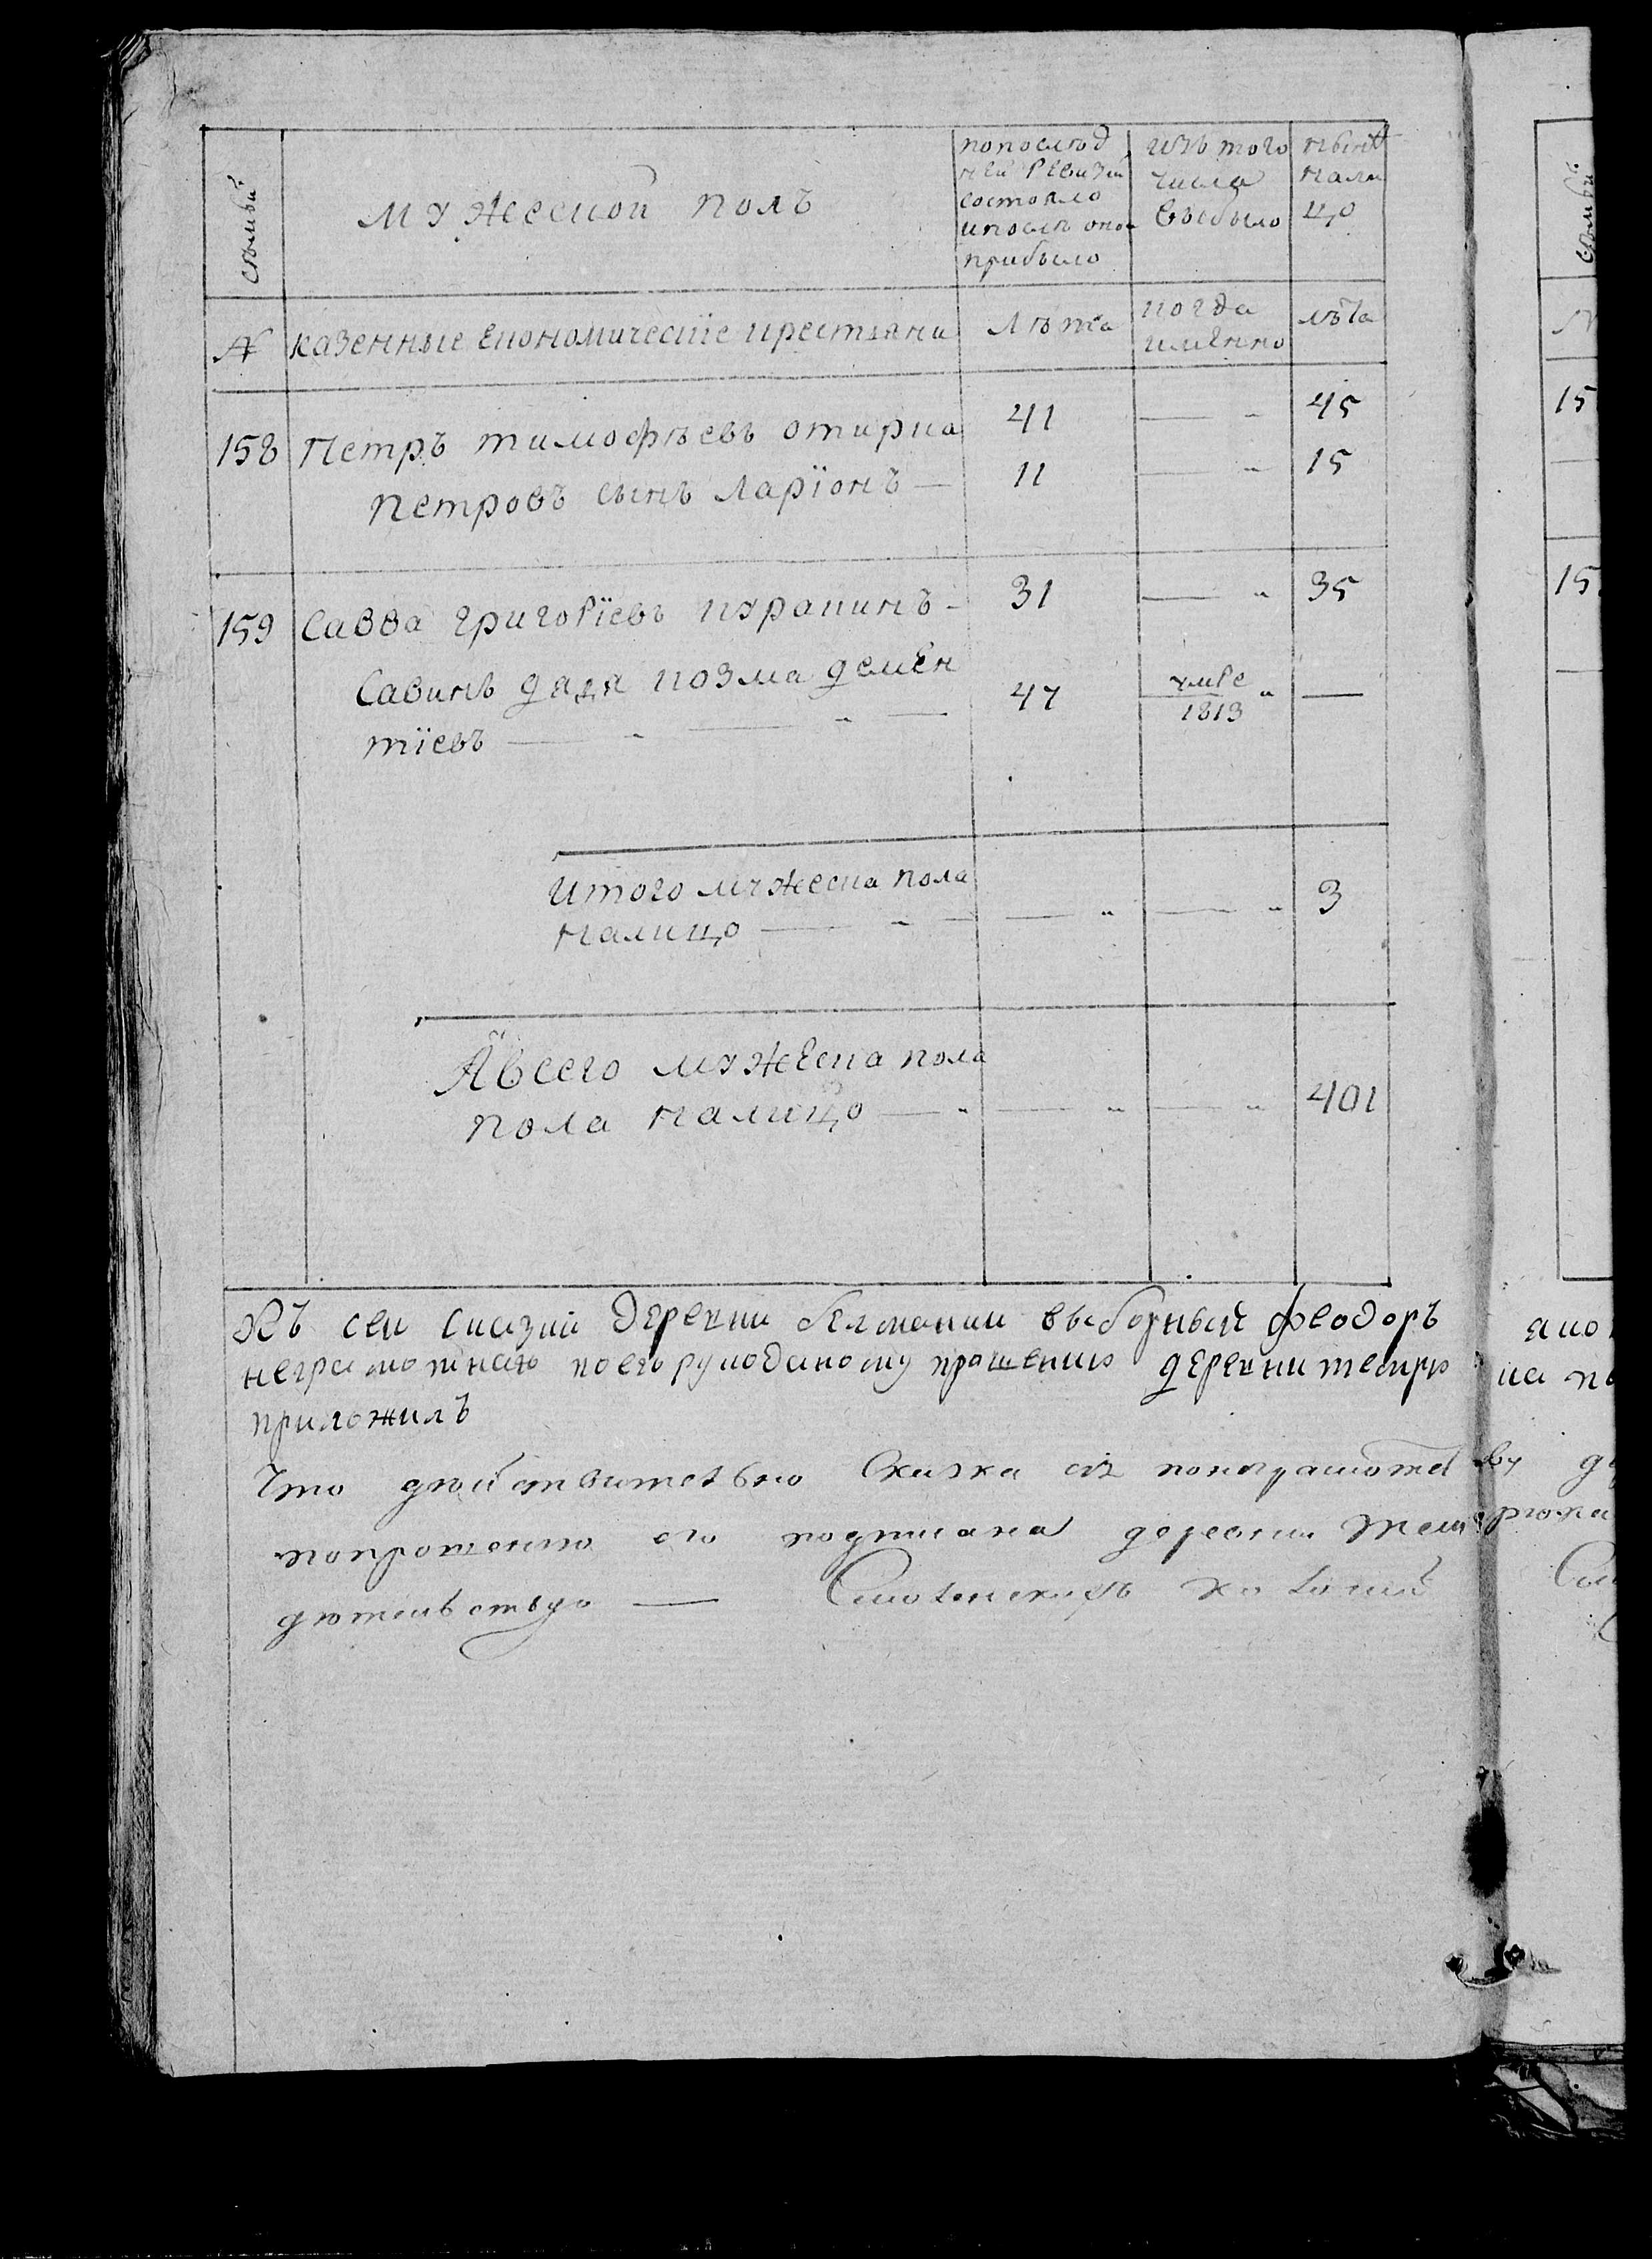 семьи
мужескои полъ
попослѣд
неи Ревизіи
состояло
ипослѣ оной
прибыло
изъ того
числа
выбыло
нынѣ
нали
цо
№
казенные економическіе крестьяни
лѣта
когда
имянно
лѣта
158
Петръ тимофѣевъ отирка
41
— „
45
Петровъ сынъ Ларіонъ —
11
— „
15
159
Савва григоріевъ куракинъ -
31
— „
35
Савинъ дядя козма демен
тіевъ — „ — „ —
47
умре
1813 „
—
Итого мужеска пола
налицо — „ —
— „
— „
3
Авсего мужеска пола
пола налицо — „
— „
— „
401
Къ сеи сказки деревни выборный феодоръ
неграмотная поего рукоданому прошению деревни
приложилъ
Что действительно Сказка сія
попрошению его подписана деревни
—
семьи
№
15
15
яко
ка по
ву